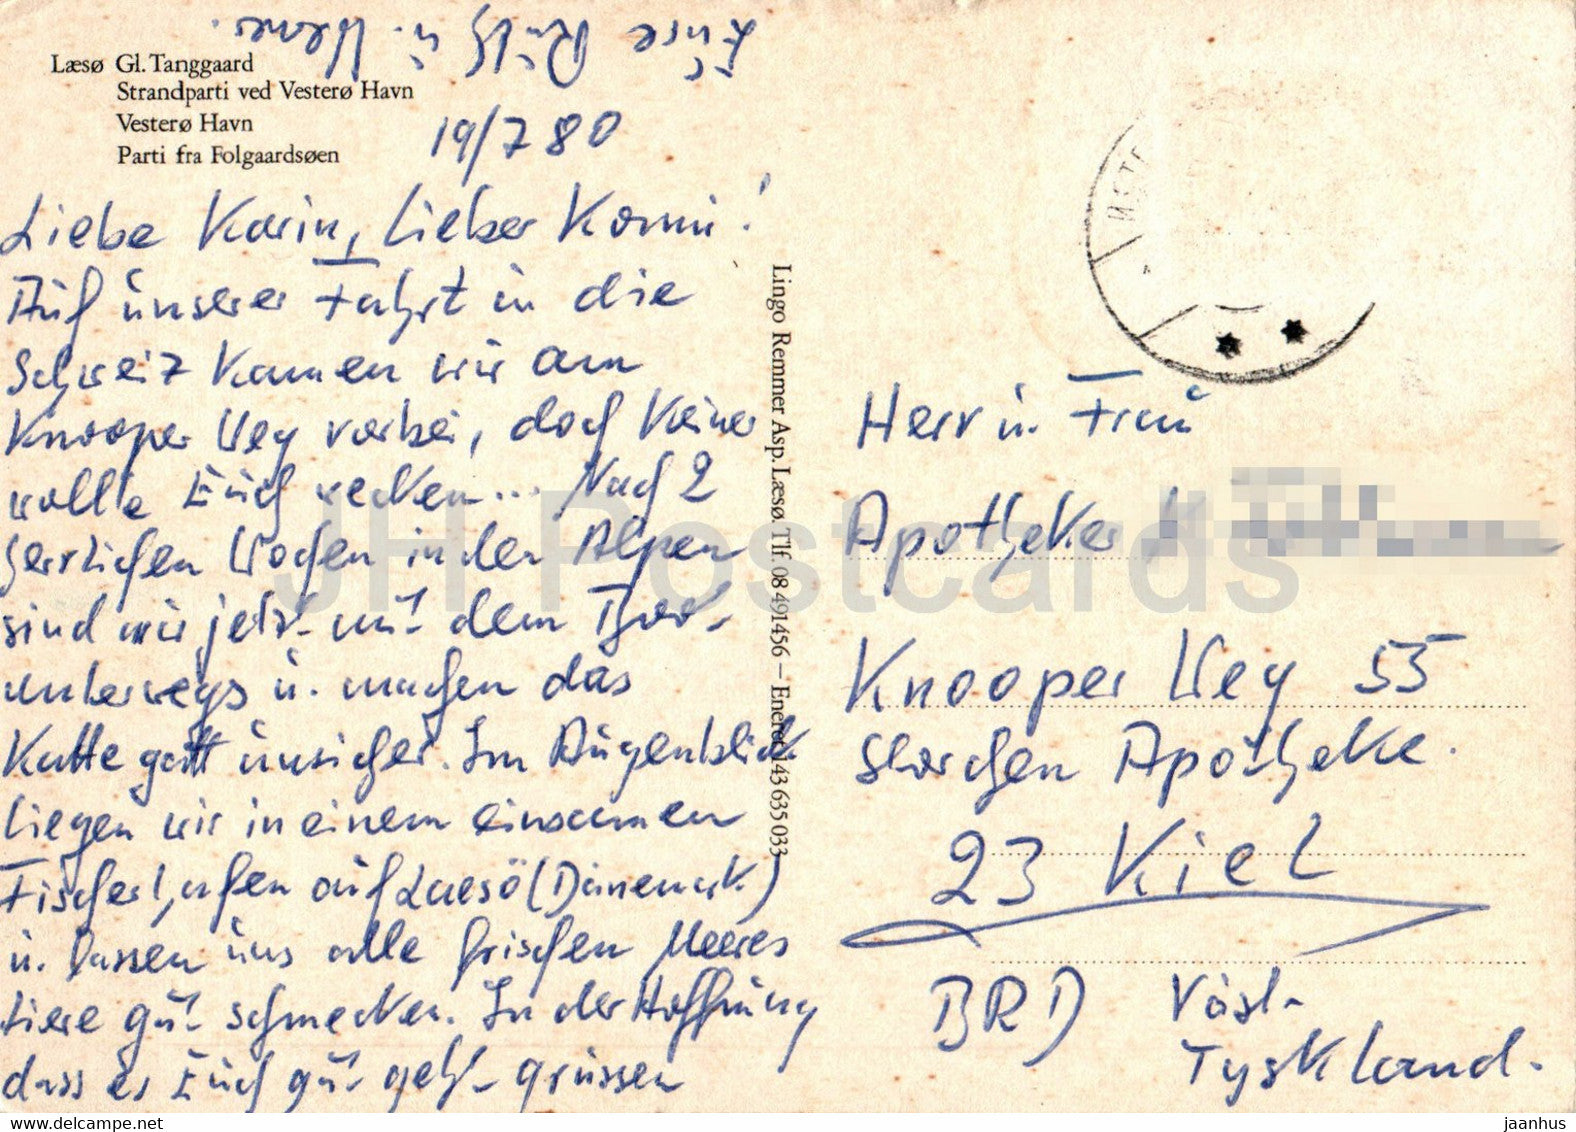 Læsø Gl. Tanggaard
Strandparti ved Vesterø Havn
Vesterø Havn
Parti fra Folgaardsøen
19/7 80
Liebe Karin, Lieber Konni!
Auf unserer Fahrt in die
Schweiz kamen wir am
Knooper Weg vorbei, doch keiner
wollte Euch wecken... Nach 2
herrlichen Wochen in den Alpen
sind wir jetzt mit dem Boot
unterwegs u. machen das
Katte gatt unsicher. Im Augenblick
liegen wir in einem einsamen
Fischerhafen auf Laesö (Dänemark)
u. lassen uns alle frischen Meeres
tiere gut schmecken. In der Hoffnung
dass es Euch gut geht grüssen
Eure Ruth u.
Lingo Remmer Asp. Læsø. Tlf. 08 491456 – Eneret 143 635 033
Herr u. Frau
Apotheker
Knooper Weg 55
Storchen Apotheke.
23 Kiel
BRD Väst-
Tyskland.
JH Postcards
www.delcampe.net
jaanhus